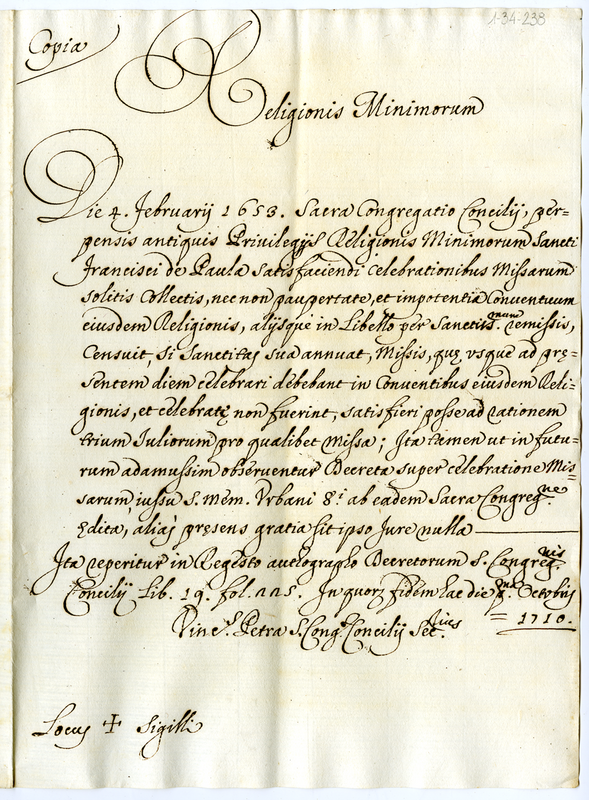 1-34-238
Copia
Religionis Minimorum
Die 4. Februarij 1653. Sacra Congregatio Concilij, per=
pensis antiquis Privilegijs Religionis Minimorum Sancti
Francisci de Paula satisfaciendi celebrationibus Missarum
solitis Collectis, nec non paupertate, et impotentia Conventuum
eiusdem Religionis, alijsque in Libello per Sanctiss.mum remissis,
Censuit, si Sanctitas sua annuat, Missis, quę vsque ad prę=
sentem diem celebrari debebant in Conventibus eiusdem Reli=
gionis, et celebratę non fuerint, satisfieri posse ad rationem
trium Iuliorum pro qualibet Missa; Ita tamen ut in futu=
rum adamussim observentur Decreta super celebratione Mis=
sarum, iussu S. Mem. Vrbani 8.i ab eadem Sacra Congreg.ne
ędita, aliàs pręsens gratia sit ipso Jure nulla
Ita reperitur in Regesto authographo Decretorum S. Congreg.nis
Concilij Lib. 19. fol. 225. In quorum fidem hac die Octobris
= 1710.
Petra S. Cong. Concilij Sec.rius
Locus + Sigilli